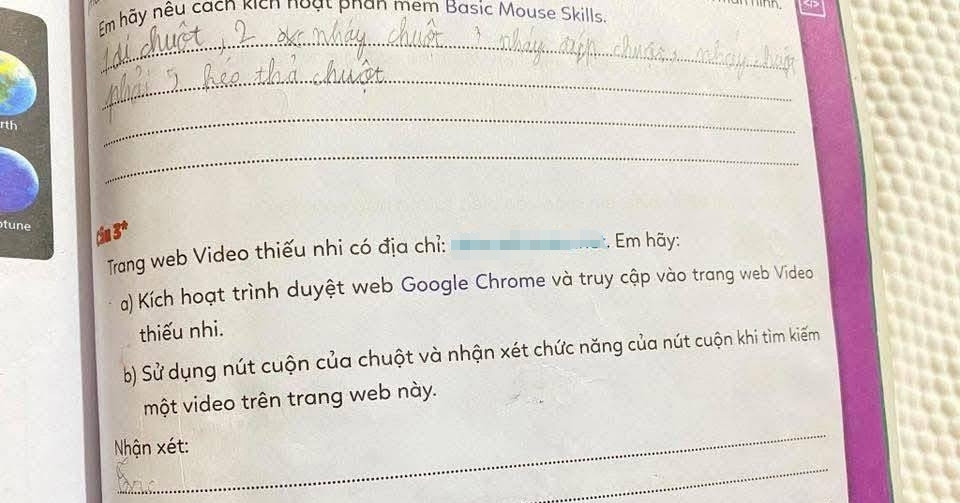 Em hãy nêu cách kích hoạt phần mềm Basic Mouse Skills.
1 di chuột, 2 nháy chuột, 3 nháy đúp chuột, nháy chuột
phải 5, kéo thả chuột
rth
ptune
Câu 3*
Trang web Video thiếu nhi có địa chỉ: . Em hãy:
a) Kích hoạt trình duyệt web Google Chrome và truy cập vào trang web Video
thiếu nhi.
b) Sử dụng nút cuộn của chuột và nhận xét chức năng của nút cuộn khi tìm kiếm
một video trên trang web này.
Nhận xét: